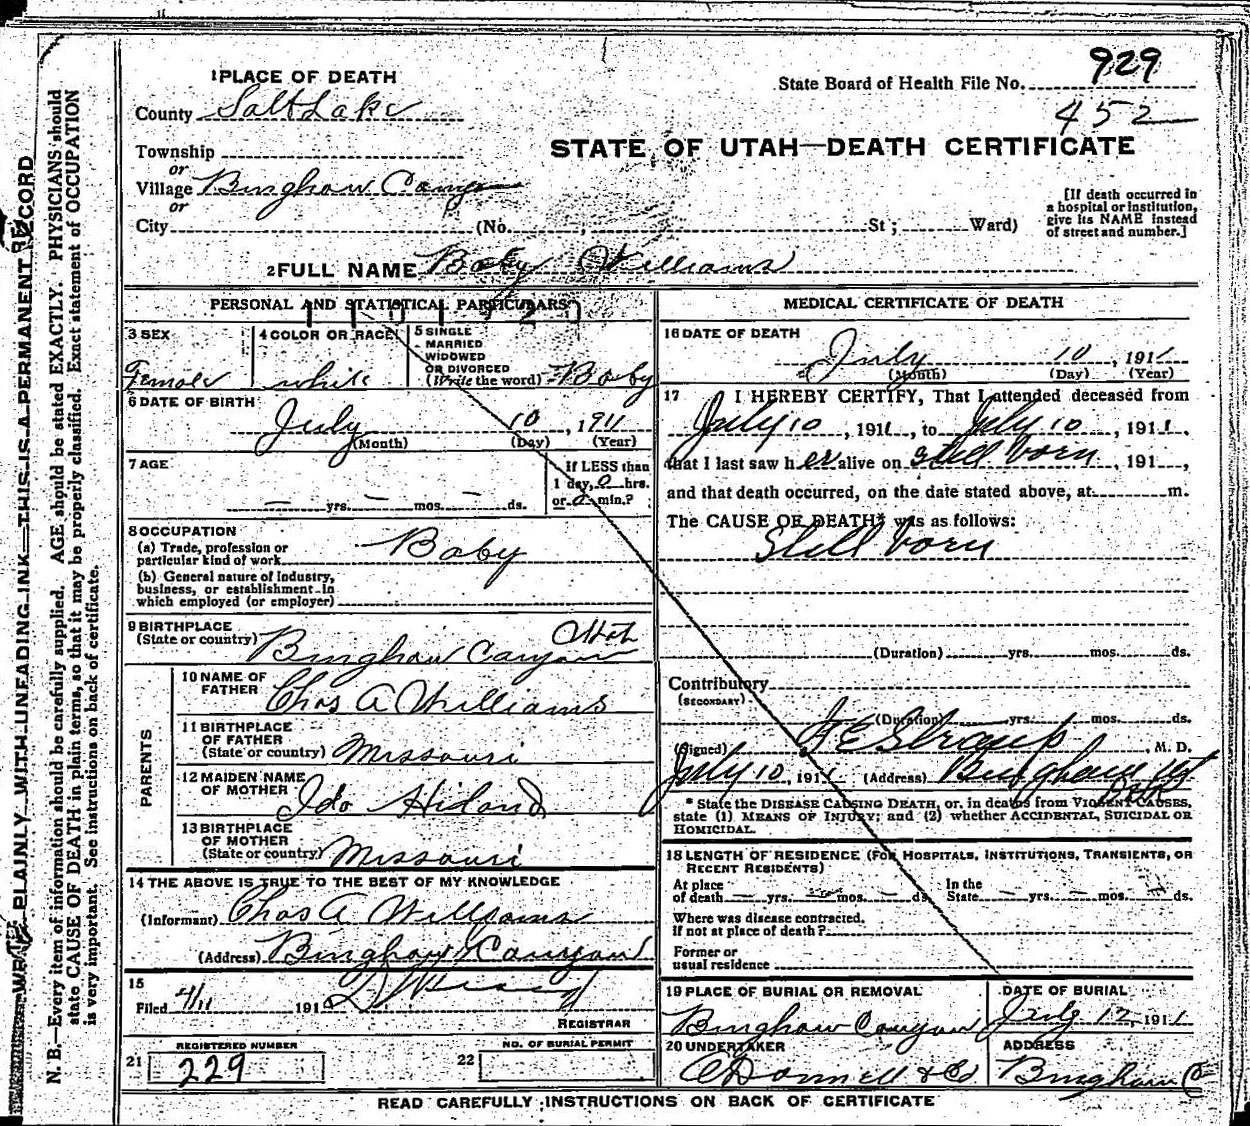 1 PLACE OF DEATH
State Board of Health File No. 929
452
County Salt Lake
STATE OF UTAH—DEATH CERTIFICATE
Township
or
Village Bingham Canyon
or
City (No. , St ; Ward)
[If death occurred in
a hospital or institution,
give its NAME instead
of street and number.]
2 FULL NAME Baby Williams
PERSONAL AND STATISTICAL PARTICULARS
3 SEX
Female
4 COLOR OR RACE
white
5 SINGLE
MARRIED
WIDOWED
OR DIVORCED
(Write the word) Baby
6 DATE OF BIRTH
July 10, 1911
(Month) (Day) (Year)
7 AGE
— yrs. — mos. — ds.
If LESS than
1 day, 0 hrs.
or 0 min.?
8 OCCUPATION
(a) Trade, profession or
particular kind of work Baby
(b) General nature of industry,
business, or establishment in
which employed (or employer)
9 BIRTHPLACE
(State or country) Bingham Canyon Utah
PARENTS
10 NAME OF
FATHER Chas A Williams
11 BIRTHPLACE
OF FATHER
(State or country) Missouri
12 MAIDEN NAME
OF MOTHER Ida Hiland
13 BIRTHPLACE
OF MOTHER
(State or country) Missouri
14 THE ABOVE IS TRUE TO THE BEST OF MY KNOWLEDGE
(Informant) Chas A Williams
(Address) Bingham Canyon
15
Filed 191
REGISTRAR
21 REGISTERED NUMBER
229
22 NO. OF BURIAL PERMIT
MEDICAL CERTIFICATE OF DEATH
16 DATE OF DEATH
July 10, 1911
(Month) (Day) (Year)
17 I HEREBY CERTIFY, That I attended deceased from
July 10, 1911, to July 10, 1911,
that I last saw her alive on still born, 191 ,
and that death occurred, on the date stated above, at m.
The CAUSE OF DEATH* was as follows:
Still born
(Duration) yrs. mos. ds.
Contributory
(SECONDARY)
(Duration) yrs. mos. ds.
(Signed) F E Straup, M. D.
July 10, 1911 (Address) Bingham Ut
* State the DISEASE CAUSING DEATH, or, in deaths from VIOLENT CAUSES,
state (1) MEANS OF INJURY; and (2) whether ACCIDENTAL, SUICIDAL OR
HOMICIDAL.
18 LENGTH OF RESIDENCE (FOR HOSPITALS, INSTITUTIONS, TRANSIENTS, OR
RECENT RESIDENTS)
At place
of death — yrs. — mos. — ds.
In the
State — yrs. — mos. — ds.
Where was disease contracted.
if not at place of death?
Former or
usual residence
19 PLACE OF BURIAL OR REMOVAL
Bingham Canyon
DATE OF BURIAL
July 12, 1911
20 UNDERTAKER
O'Donnell & Co
ADDRESS
Bingham C
READ CAREFULLY INSTRUCTIONS ON BACK OF CERTIFICATE
WRITE PLAINLY WITH UNFADING INK—THIS IS A PERMANENT RECORD
N. B.—Every item of information should be carefully supplied. AGE should be stated EXACTLY. PHYSICIANS should
state CAUSE OF DEATH in plain terms, so that it may be properly classified. Exact statement of OCCUPATION
is very important. See instructions on back of certificate.